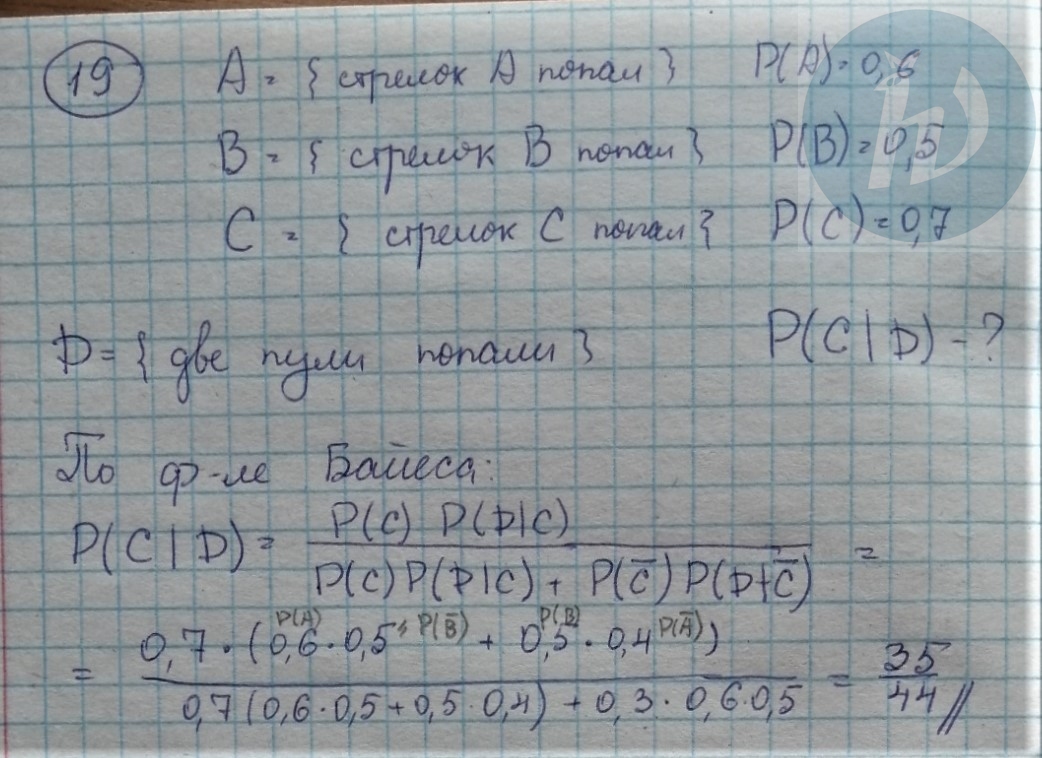 19 A = { стрелок А попал } P(A) = 0,6
B = { стрелок B попал } P(B) = 0,5
C = { стрелок C попал } P(C) = 0,7
D = { две пули попали } P(C | D) - ?
По ф-ле Байеса:
P(C | D) = P(C) P(D|C) / P(C) P(D|C) + P(C̅) P(D|C̅) =
= 0,7 · (0,6 · 0,5 + 0,5 · 0,4) / 0,7 (0,6 · 0,5 + 0,5 · 0,4) + 0,3 · 0,6 · 0,5 = 35/44 //
P(A) P(B̅) P(B) P(A̅)